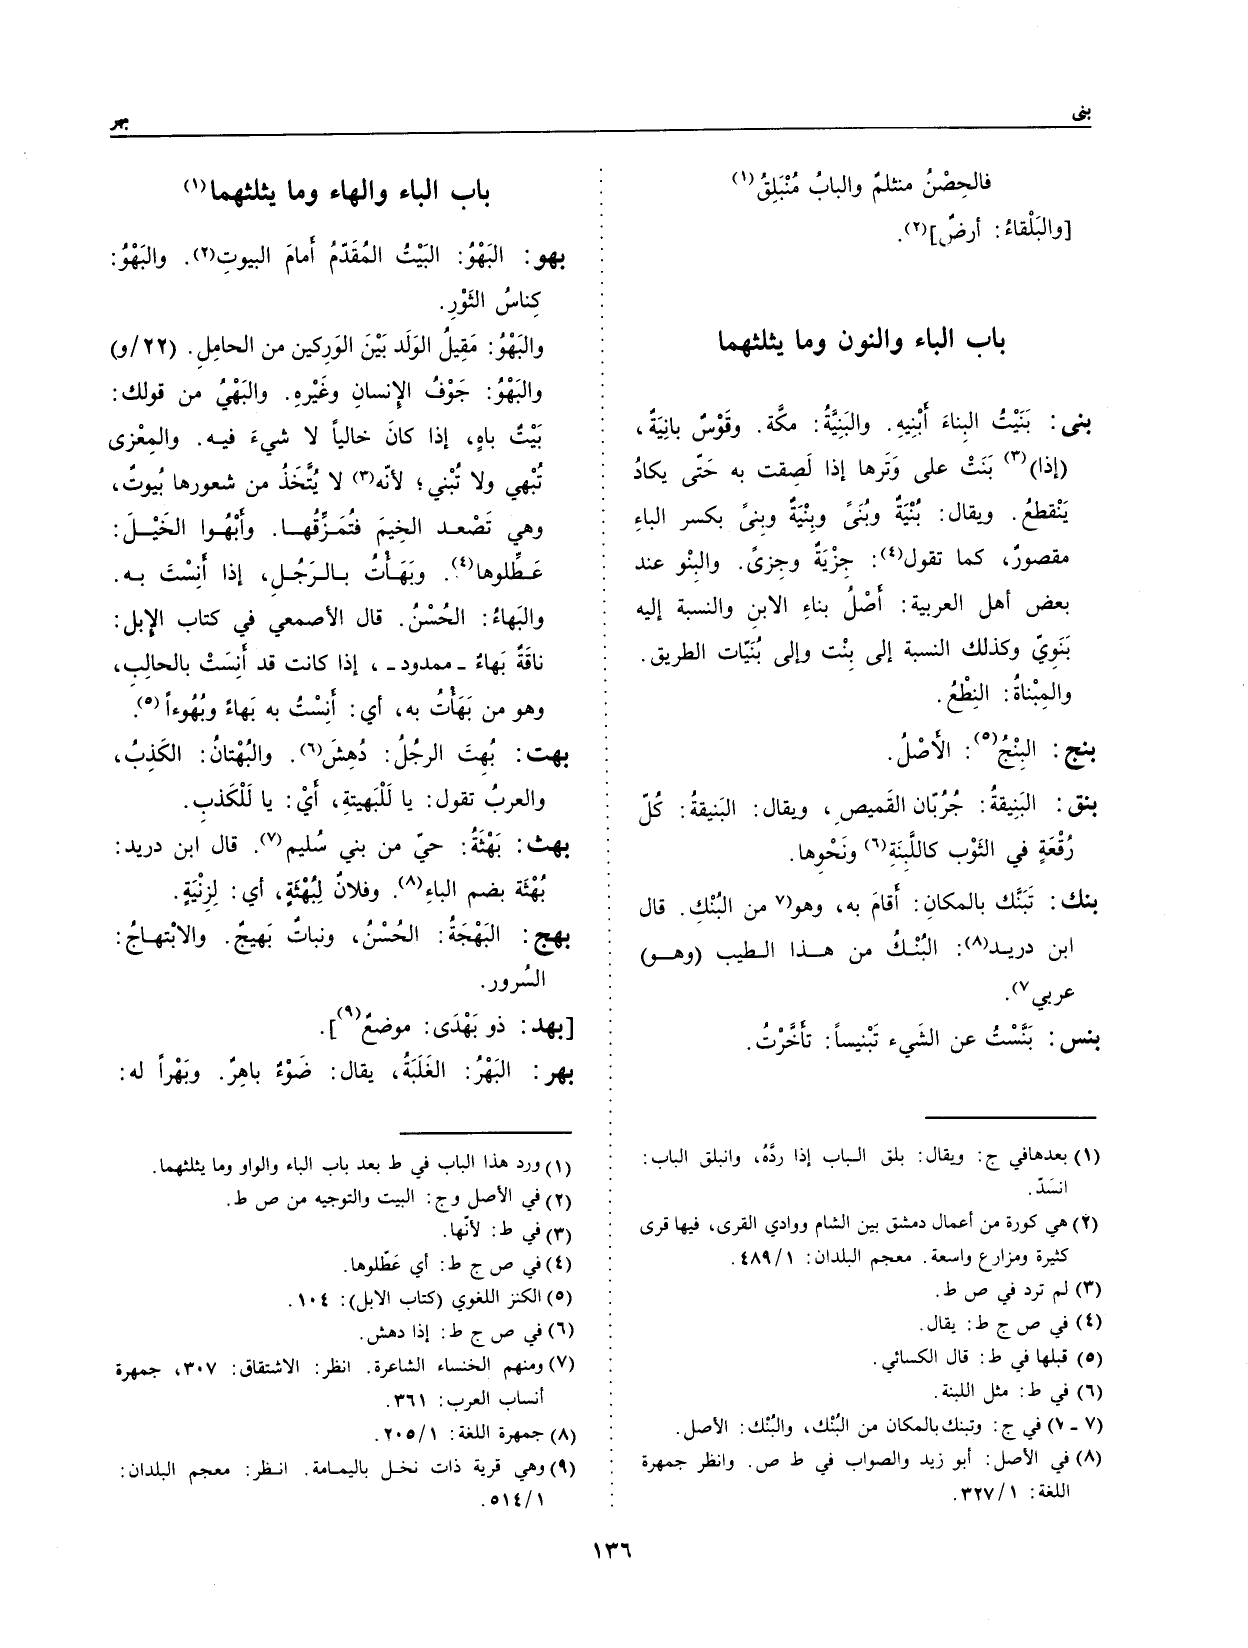 بنى
بهر
فالحِصْنُ منثلمٌ والبابُ مُنْبَلِقُ(١)
[والبَلْقاءُ: أرضٌ](٢).
باب الباء والنون وما يثلثهما
بنى: بَنَيْتُ البِناءَ أَبْنِيهِ. والبَنِيَّةُ: مكَّة. وقَوْسٌ بانِيَةٌ،
(إذا)(٣) بَنَتْ على وَتَرها إذا لَصِقت به حَتّى يكادُ
يَنْقطعُ. ويقال: بُنْيَةٌ وبُنَىً وبِنْيَةٌ وبِنىً بكسر الباءِ
مقصورٌ، كما تقول(٤): جِزْيَةٌ وجِزىً. والبِنْو عند
بعض أهل العربية: أَصْلُ بناءِ الابنِ والنسبة إليه
بَنَوِيّ وكذلك النسبة إلى بِنْت وإلى بُنَيّات الطريق.
والمِبْناةُ: النِطْعُ.
بنج: البِنْجُ(٥): الأَصْلُ.
بنق: البَنِيقةُ: جُرُبّان القَميصِ، ويقال: البَنيقةُ: كُلّ
رُقْعَةٍ في الثوْب كاللَّبِنَةِ(٦) ونَحْوِها.
بنك: تَبَنَّك بالمكانِ: أَقامَ به، وهو(٧ من البُنْكِ. قال
ابن دريد(٨): البُنْكُ من هذا الطيب (وهو)
عربي٧).
بنس: بَنَّسْتُ عن الشَيء تَبْنيساً: تأَخَّرْتُ.
(١) بعدها في ج: ويقال: بلق الباب إذا ردَّهُ، وانبلق الباب:
انسَدّ.
(٢) هي كورة من أعمال دمشق بين الشام ووادي القرى، فيها قرى
كثيرة ومزارع واسعة. معجم البلدان: ٤٨٩/١.
(٣) لم ترد في ص ط.
(٤) في ص ج ط: يقال.
(٥) قبلها في ط: قال الكسائي.
(٦) في ط: مثل اللبنة.
(٧ - ٧) في ج: وتبنك بالمكان من البُنْك، والبُنْك: الأصل.
(٨) في الأصل: أبو زيد والصواب في ط ص. وانظر جمهرة
اللغة: ٣٢٧/١.
باب الباء والهاء وما يثلثهما(١)
بهو: البَهْوُ: البَيْتُ المُقَدّمُ أَمامَ البيوتِ(٢). والبَهْوُ:
كِناسُ الثَوْرِ.
والبَهْوُ: مَقِيلُ الوَلَد بَيْنَ الوَرِكين من الحامِلِ. (٢٢/و)
والبَهْوُ: جَوْفُ الإِنسانِ وغَيْرِهِ. والبَهْيُ من قولك:
بَيْتٌ باهٍ، إذا كانَ خالياً لا شيءَ فيه. والمِعْزى
تُبْهي ولا تُبْني؛ لأنّه(٣) لا يُتَّخَذُ من شعورها بُيوتٌ،
وهي تَصْعد الخِيمَ فتُمَزِّقُها. وأَبْهُوا الخَيْلَ:
عَطِّلوها(٤). وبَهَأْتُ بالرَجُلِ، إذا أَنِسْتَ به.
والبَهاءُ: الحُسْنُ. قال الأصمعي في كتاب الإبل:
ناقَةٌ بَهاءٌ ـ ممدود ـ، إذا كانت قد أَنِسَتْ بالحالِبِ،
وهو من بَهَأْتُ به، أي: أَنِسْتُ به بَهاءً وبُهُوءاً(٥).
بهت: بُهِتَ الرجُلُ: دُهِشَ(٦). والبُهْتانُ: الكَذِبُ،
والعربُ تقول: يا لَلْبَهيتةِ، أَيْ: يا لَلْكَذبِ.
بهث: بَهْثَةُ: حيّ من بني سُليم(٧). قال ابن دريد:
بُهْثَة بضم الباءِ(٨). وفلانٌ لِبُهْثَةٍ، أي: لِزِنْيَةٍ.
بهج: البَهْجَةُ: الحُسْنُ، ونباتٌ بَهيجٌ. والابْتهاجُ:
السُرور.
[بهد: ذو بَهْدَى: موضعٌ(٩)].
بهر: البَهْرُ: الغَلَبَةُ، يقال: ضَوْءٌ باهِرٌ. وبَهْراً له:
(١) ورد هذا الباب في ط بعد باب الباء والواو وما يثلثهما.
(٢) في الأصل وج: البيت والتوجيه من ص ط.
(٣) في ط: لأنّها.
(٤) في ص ج ط: أي عَطّلوها.
(٥) الكنز اللغوي (كتاب الابل): ١٠٤.
(٦) في ص ج ط: إذا دهش.
(٧) ومنهم الخنساء الشاعرة. انظر: الاشتقاق: ٣٠٧، جمهرة
أنساب العرب: ٣٦١.
(٨) جمهرة اللغة: ٢٠٥/١.
(٩) وهي قرية ذات نخل باليمامة. انظر: معجم البلدان:
٥١٤/١.
١٣٦